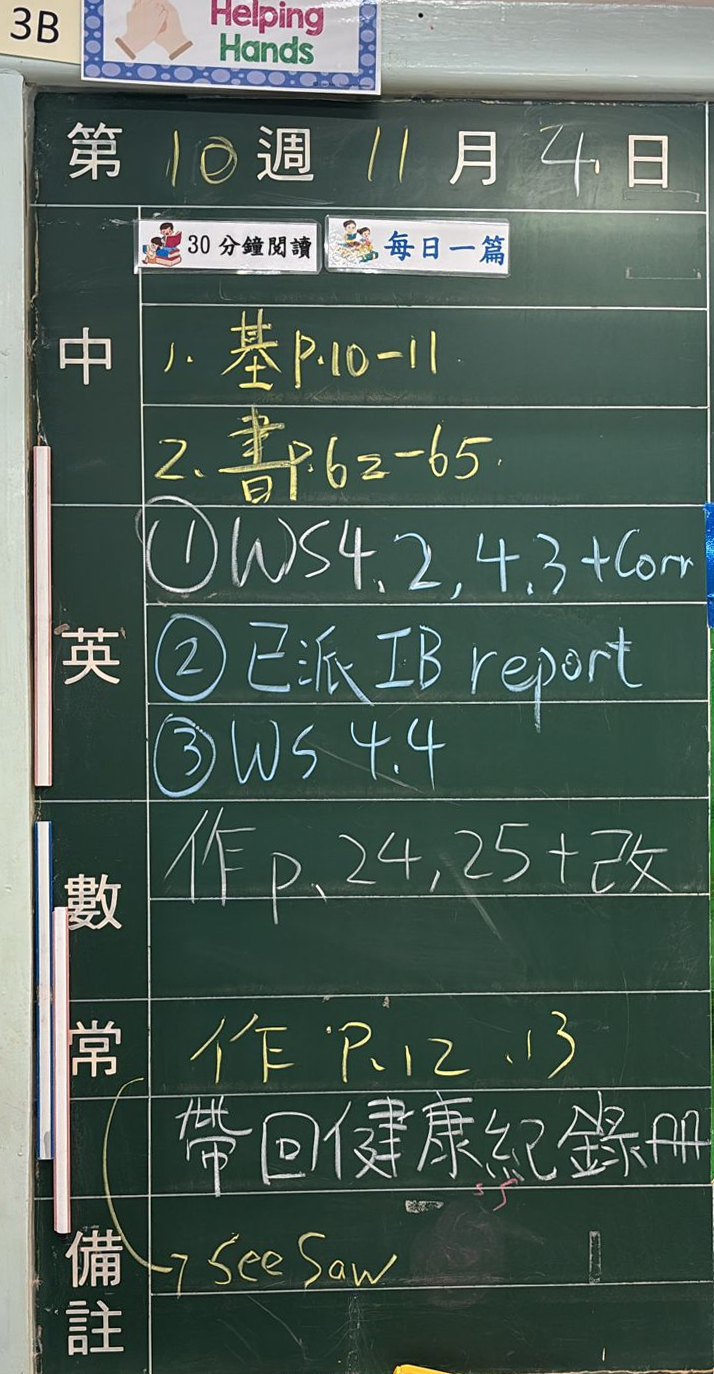 3B
Helping
Hands
第 10 週 11 月 4 日
30分鐘閱讀 每日一篇
中
1. 基 P.10-11
2. 書 P.62-65
英
① WS4.2, 4.3 + Corr
② 已派 IB report
③ WS 4.4
數
作 p.24, 25 + 改
常
作 P.12, 13
帶回健康紀錄冊
備註
→ See Saw